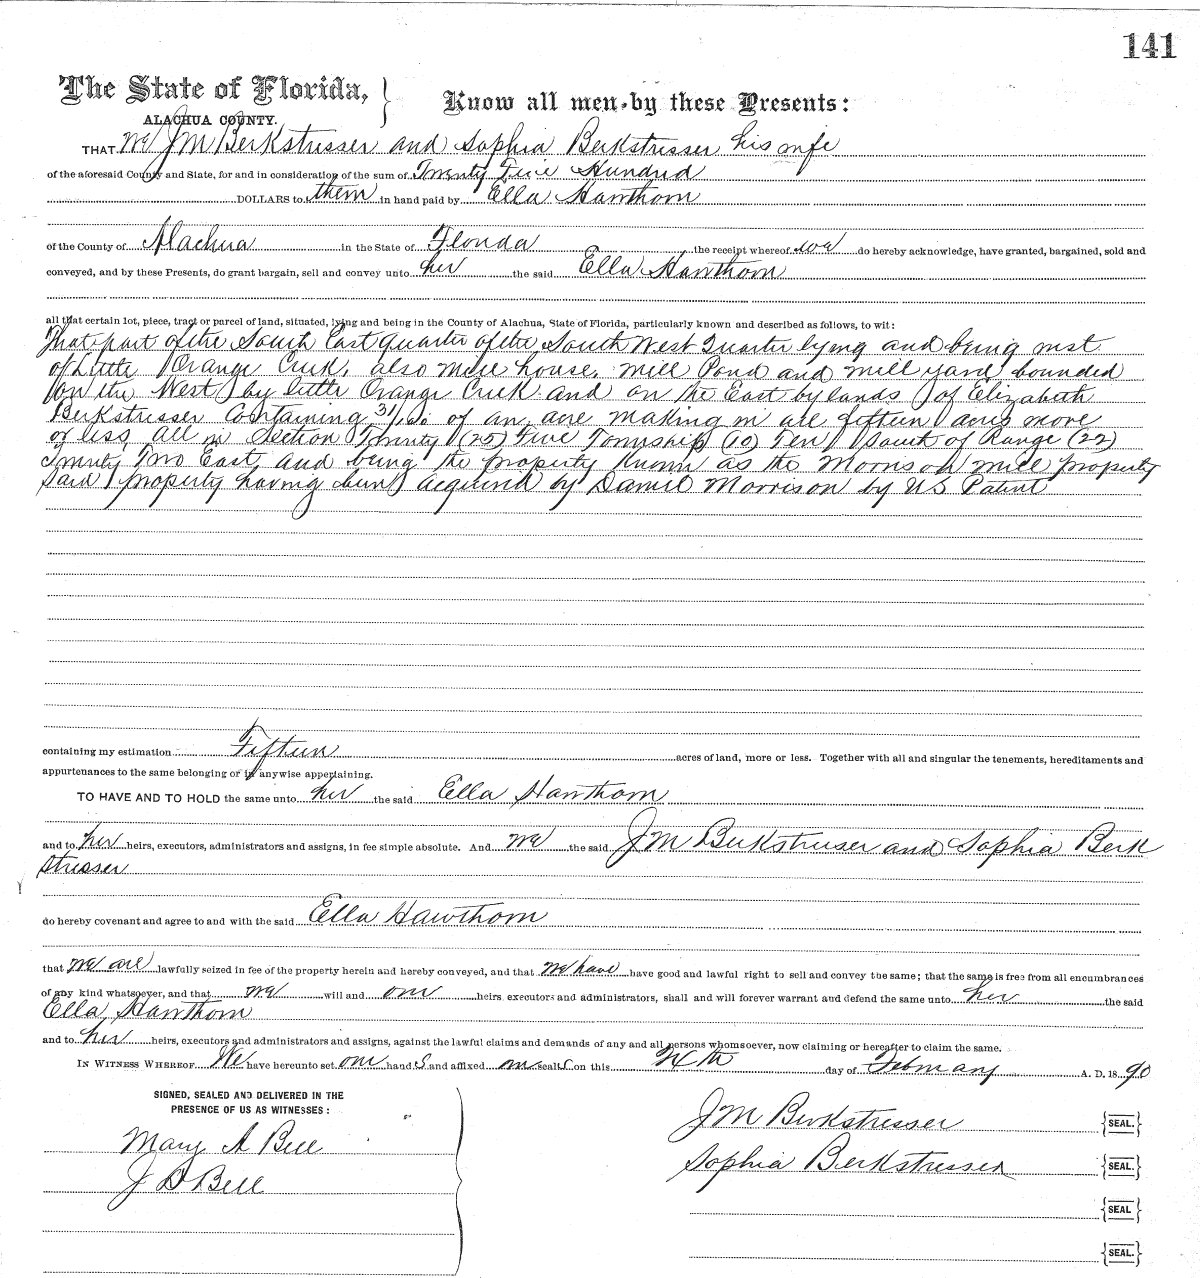 141
The State of Florida,
ALACHUA COUNTY.
Know all men by these Presents:
THAT We J M Berkstresser and Sophia Berkstresser his wife
of the aforesaid County and State, for and in consideration of the sum of Twenty Five Hundred
DOLLARS to them in hand paid by Ella Hawthorn
of the County of Alachua in the State of Florida the receipt whereof we do hereby acknowledge, have granted, bargained, sold and
conveyed, and by these Presents, do grant bargain, sell and convey unto her the said Ella Hawthorn
all that certain lot, piece, tract or parcel of land, situated, lying and being in the County of Alachua, State of Florida, particularly known and described as follows, to wit:
That part of the South East quarter of the South West Quarter lying and being west
of Little Orange Creek, also mill house, mill Pond and mill yard bounded
on the West by little Orange Creek and on the East by lands of Elizabeth
Berkstresser containing 31/100 of an acre making in all fifteen acres more
or less all in Section Twenty (25) Five Township (10) Ten South of Range (22)
Twenty Two East, and being the property known as the Morrison mill property
Said property having been acquired by Daniel Morrison by U S Patent
containing my estimation Fifteen acres of land, more or less. Together with all and singular the tenements, hereditaments and
appurtenances to the same belonging or in anywise appertaining.
TO HAVE AND TO HOLD the same unto her the said Ella Hawthorn
and to her heirs, executors, administrators and assigns, in fee simple absolute. And we the said J M Berkstresser and Sophia Berk
stresser
do hereby covenant and agree to and with the said Ella Hawthorn
that we are lawfully seized in fee of the property herein and hereby conveyed, and that we have have good and lawful right to sell and convey the same; that the same is free from all encumbrances
of any kind whatsoever, and that we will and our heirs, executors and administrators, shall and will forever warrant and defend the same unto her the said
Ella Hawthorn
and to her heirs, executors and administrators and assigns, against the lawful claims and demands of any and all persons whomsoever, now claiming or hereafter to claim the same.
IN WITNESS WHEREOF We have hereunto set our hand S and affixed our seal S on this day of February A. D. 18 90
SIGNED, SEALED AND DELIVERED IN THE
PRESENCE OF US AS WITNESSES:
Mary A Bell
J D Bell
J M Berkstresser {SEAL.}
Sophia Berkstresser {SEAL.}
{SEAL}
{SEAL.}